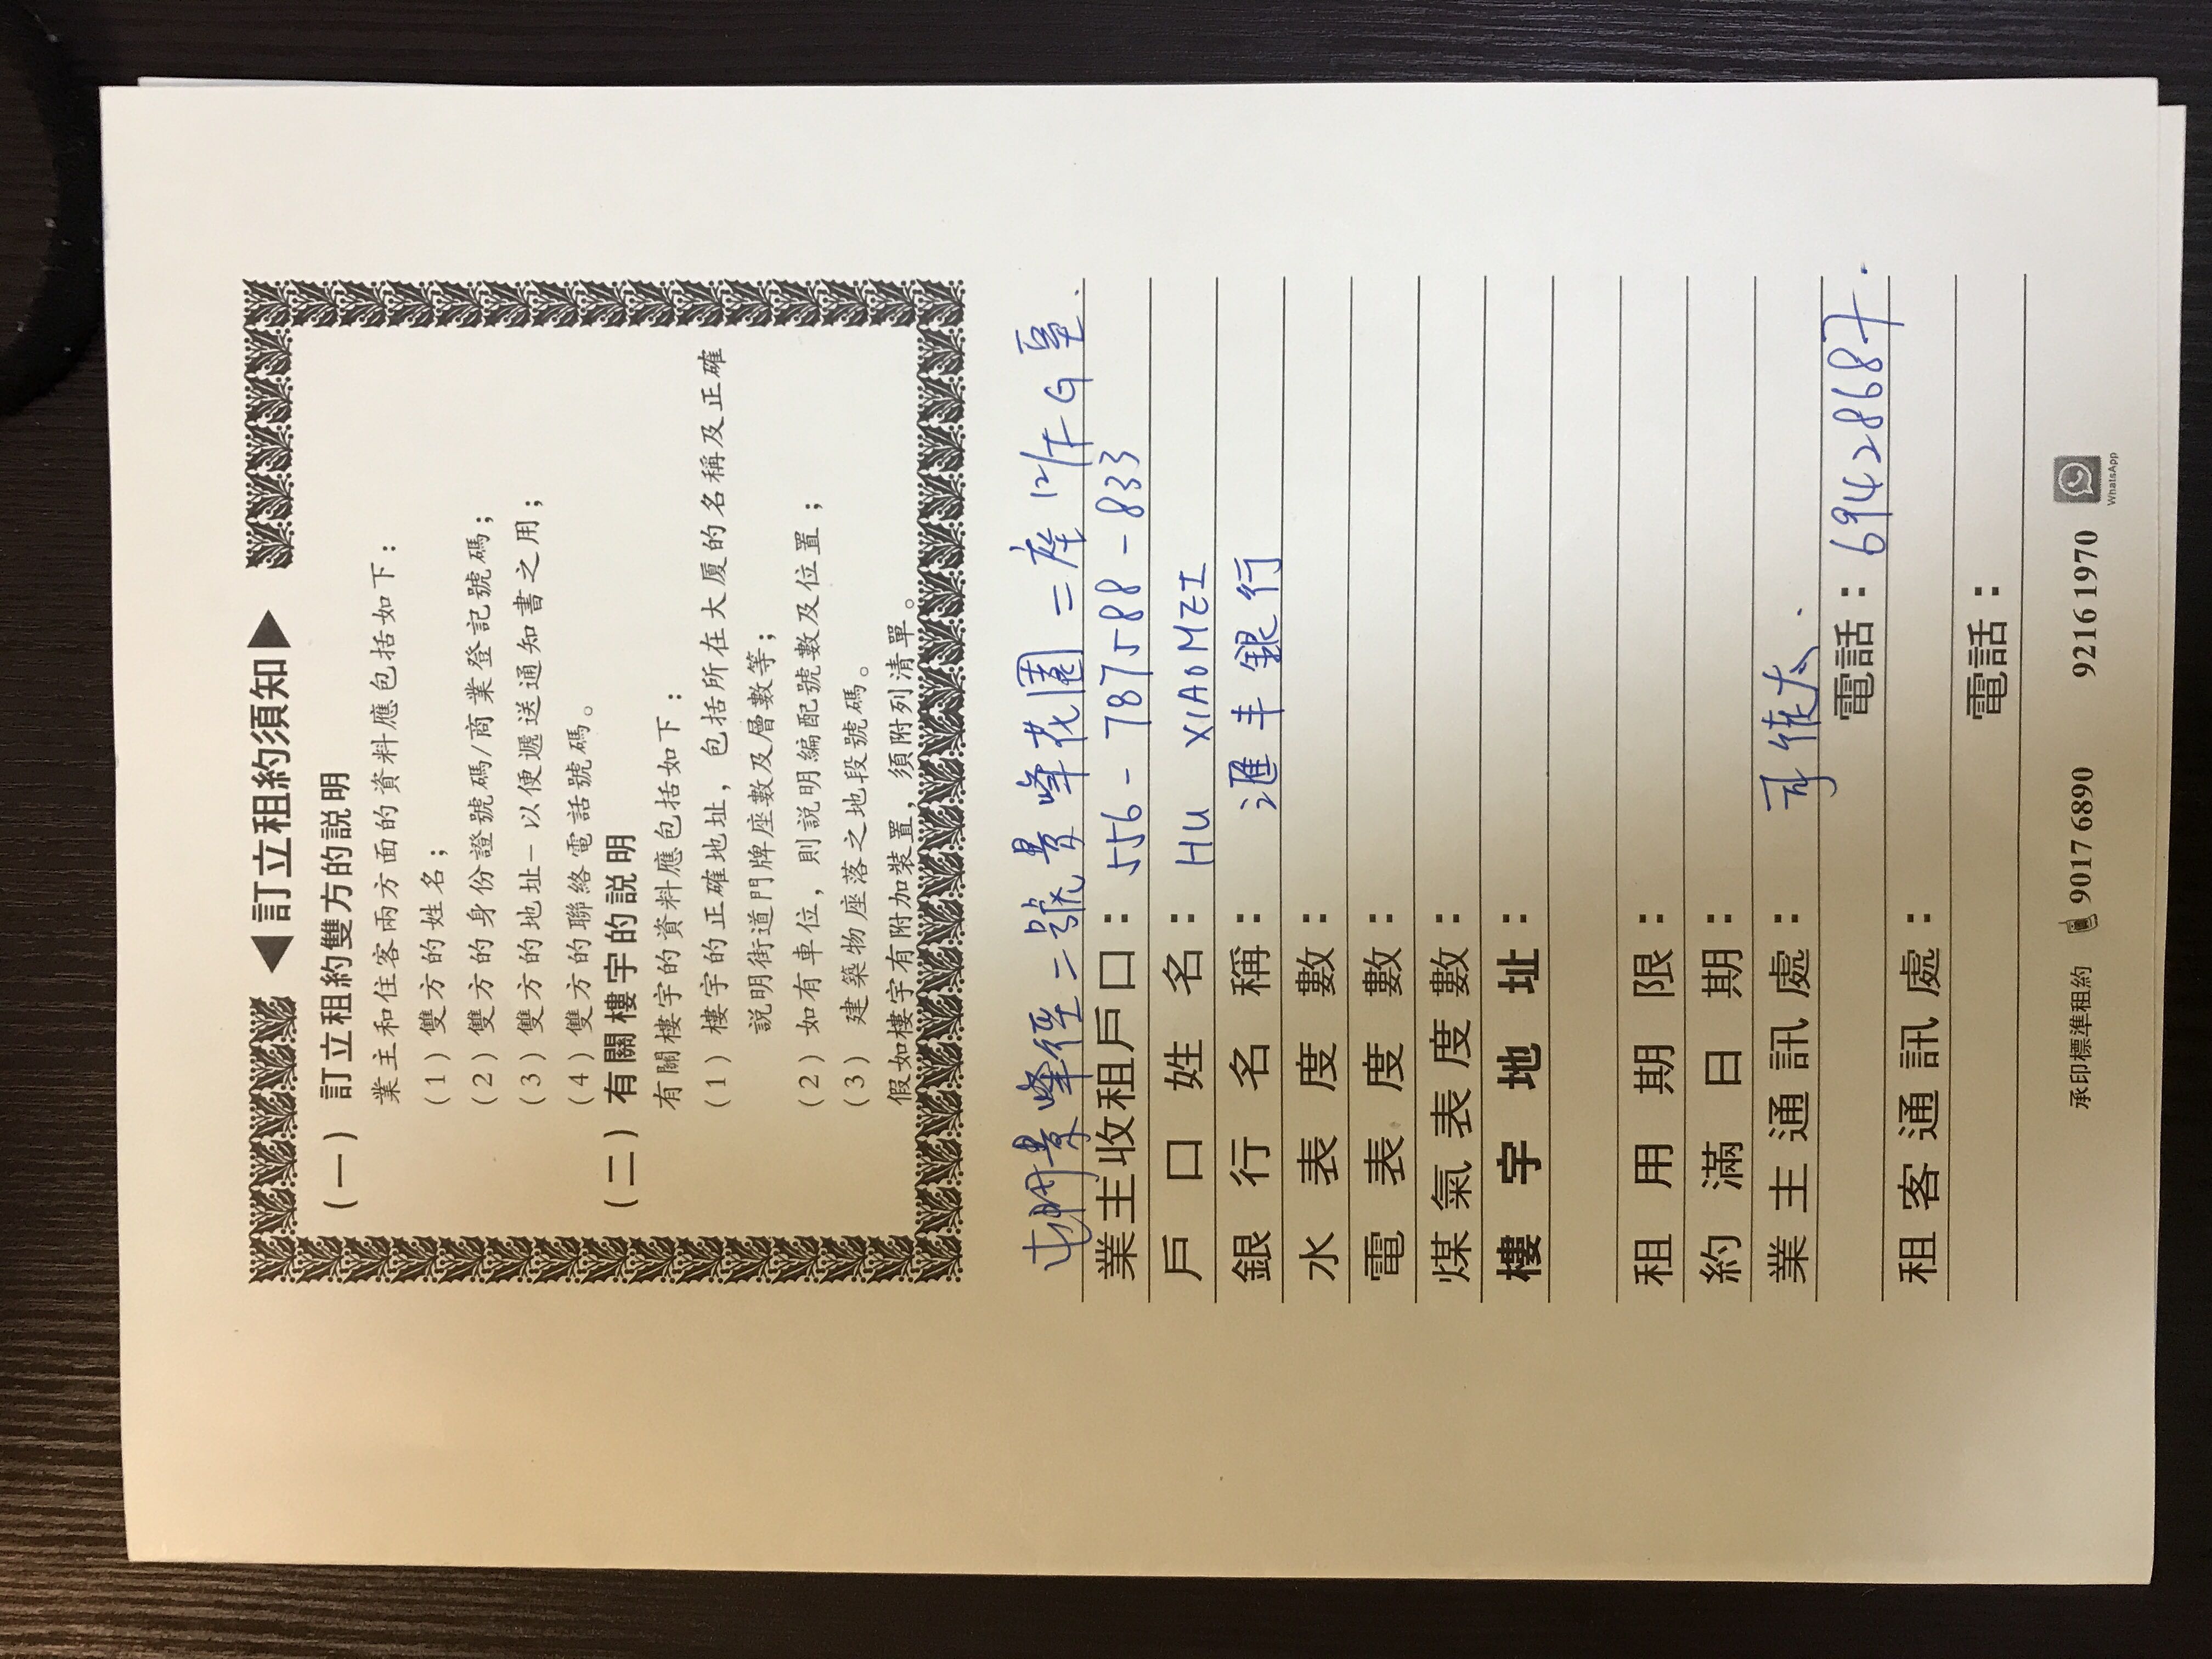 ◀訂立租約須知▶
(一) 訂立租約雙方的説明
業主和住客兩方面的資料應包括如下：
(1) 雙方的姓名；
(2) 雙方的身份證號碼/商業登記號碼；
(3) 雙方的地址－以便遞送通知書之用；
(4) 雙方的聯絡電話號碼。
(二) 有關樓宇的説明
有關樓宇的資料應包括如下：
(1) 樓宇的正確地址，包括所在大厦的名稱及正確
説明街道門牌座數及層數等；
(2) 如有車位，則説明編配號數及位置；
(3) 建築物座落之地段號碼。
假如樓宇有附加裝置，須附列清單。
屯門景峰徑二號景峰花園二座12/F G室.
業主收租戶口：556-787588-833
戶口姓名：HU XIAOMEI
銀行名稱：滙丰銀行
水表度數：
電表度數：
煤氣表度數：
樓宇地址：
租用期限：
約滿日期：
業主通訊處：
電話：69428687.
租客通訊處：
電話：
承印標準租約 9017 6890 9216 1970 WhatsApp